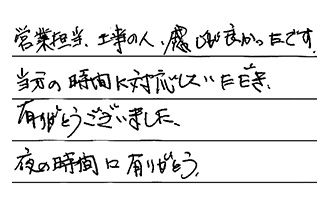 営業担当、工事の人、感じが良かったです。
当方の時間に対応していただき、
有りがとうございました、
夜の時間に有りがとう、